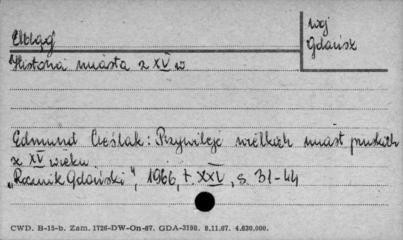 Elbląg
woj
Gdańsk
Historia miasta z XV w
Edmund Cieślak: Przywileje wielkich miast pruskich
z XV wieku
„Rocznik Gdański", 1966, t. XXV, s. 31-44
CWD. B-15-b. Zam. 1726-DW-On-67. GDA-3198. 8.11.67. 4.630.000.